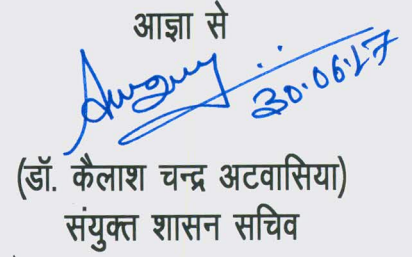 आज्ञा से
30.06.17
(डॉ. कैलाश चन्द्र अटवासिया)
संयुक्त शासन सचिव